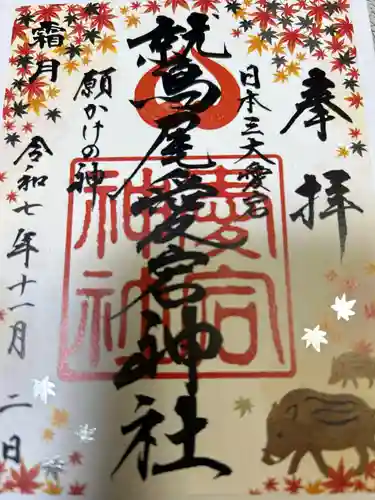 奉拝
日本三大愛宕
鷲尾愛宕神社
愛宕神社
願かけの神
霜月
令和七年十一月二日